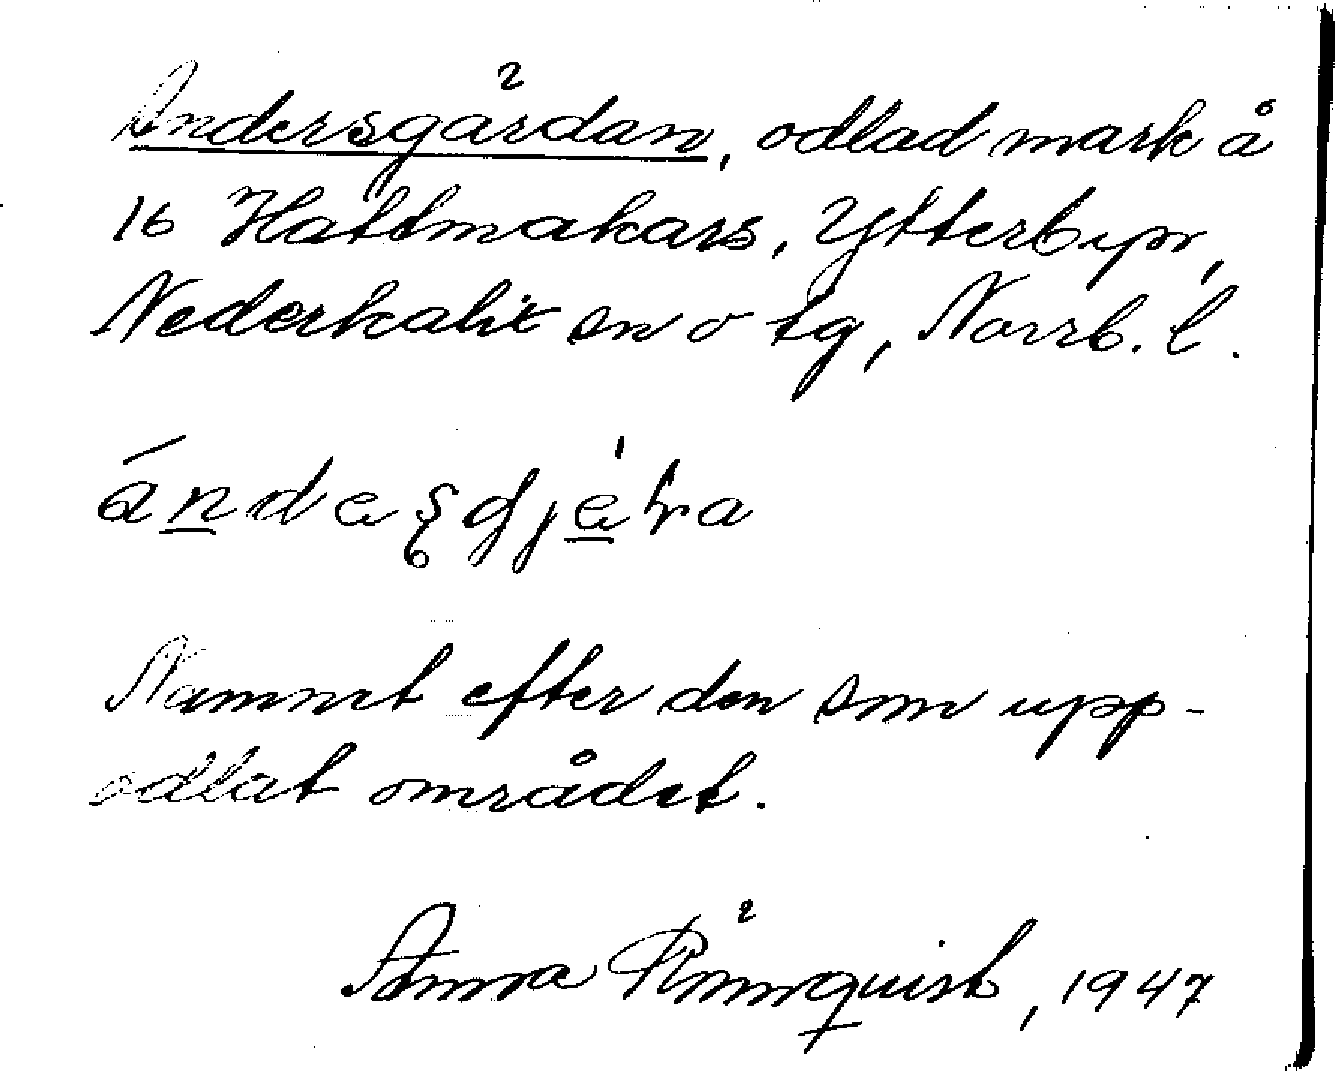 Andersgårdan, odlad mark å
16 Hattmakars, Ytterbyn,
Nederkalix sn o tg, Norrb. l.
Namnet efter den som upp-
odlat området.
Anna Rönnquist, 1947